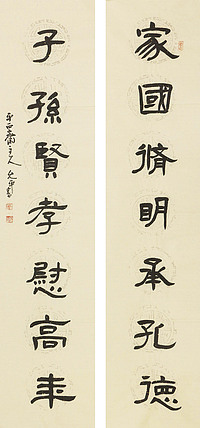 家國脩明承孔德
子孫賢孝慰高年